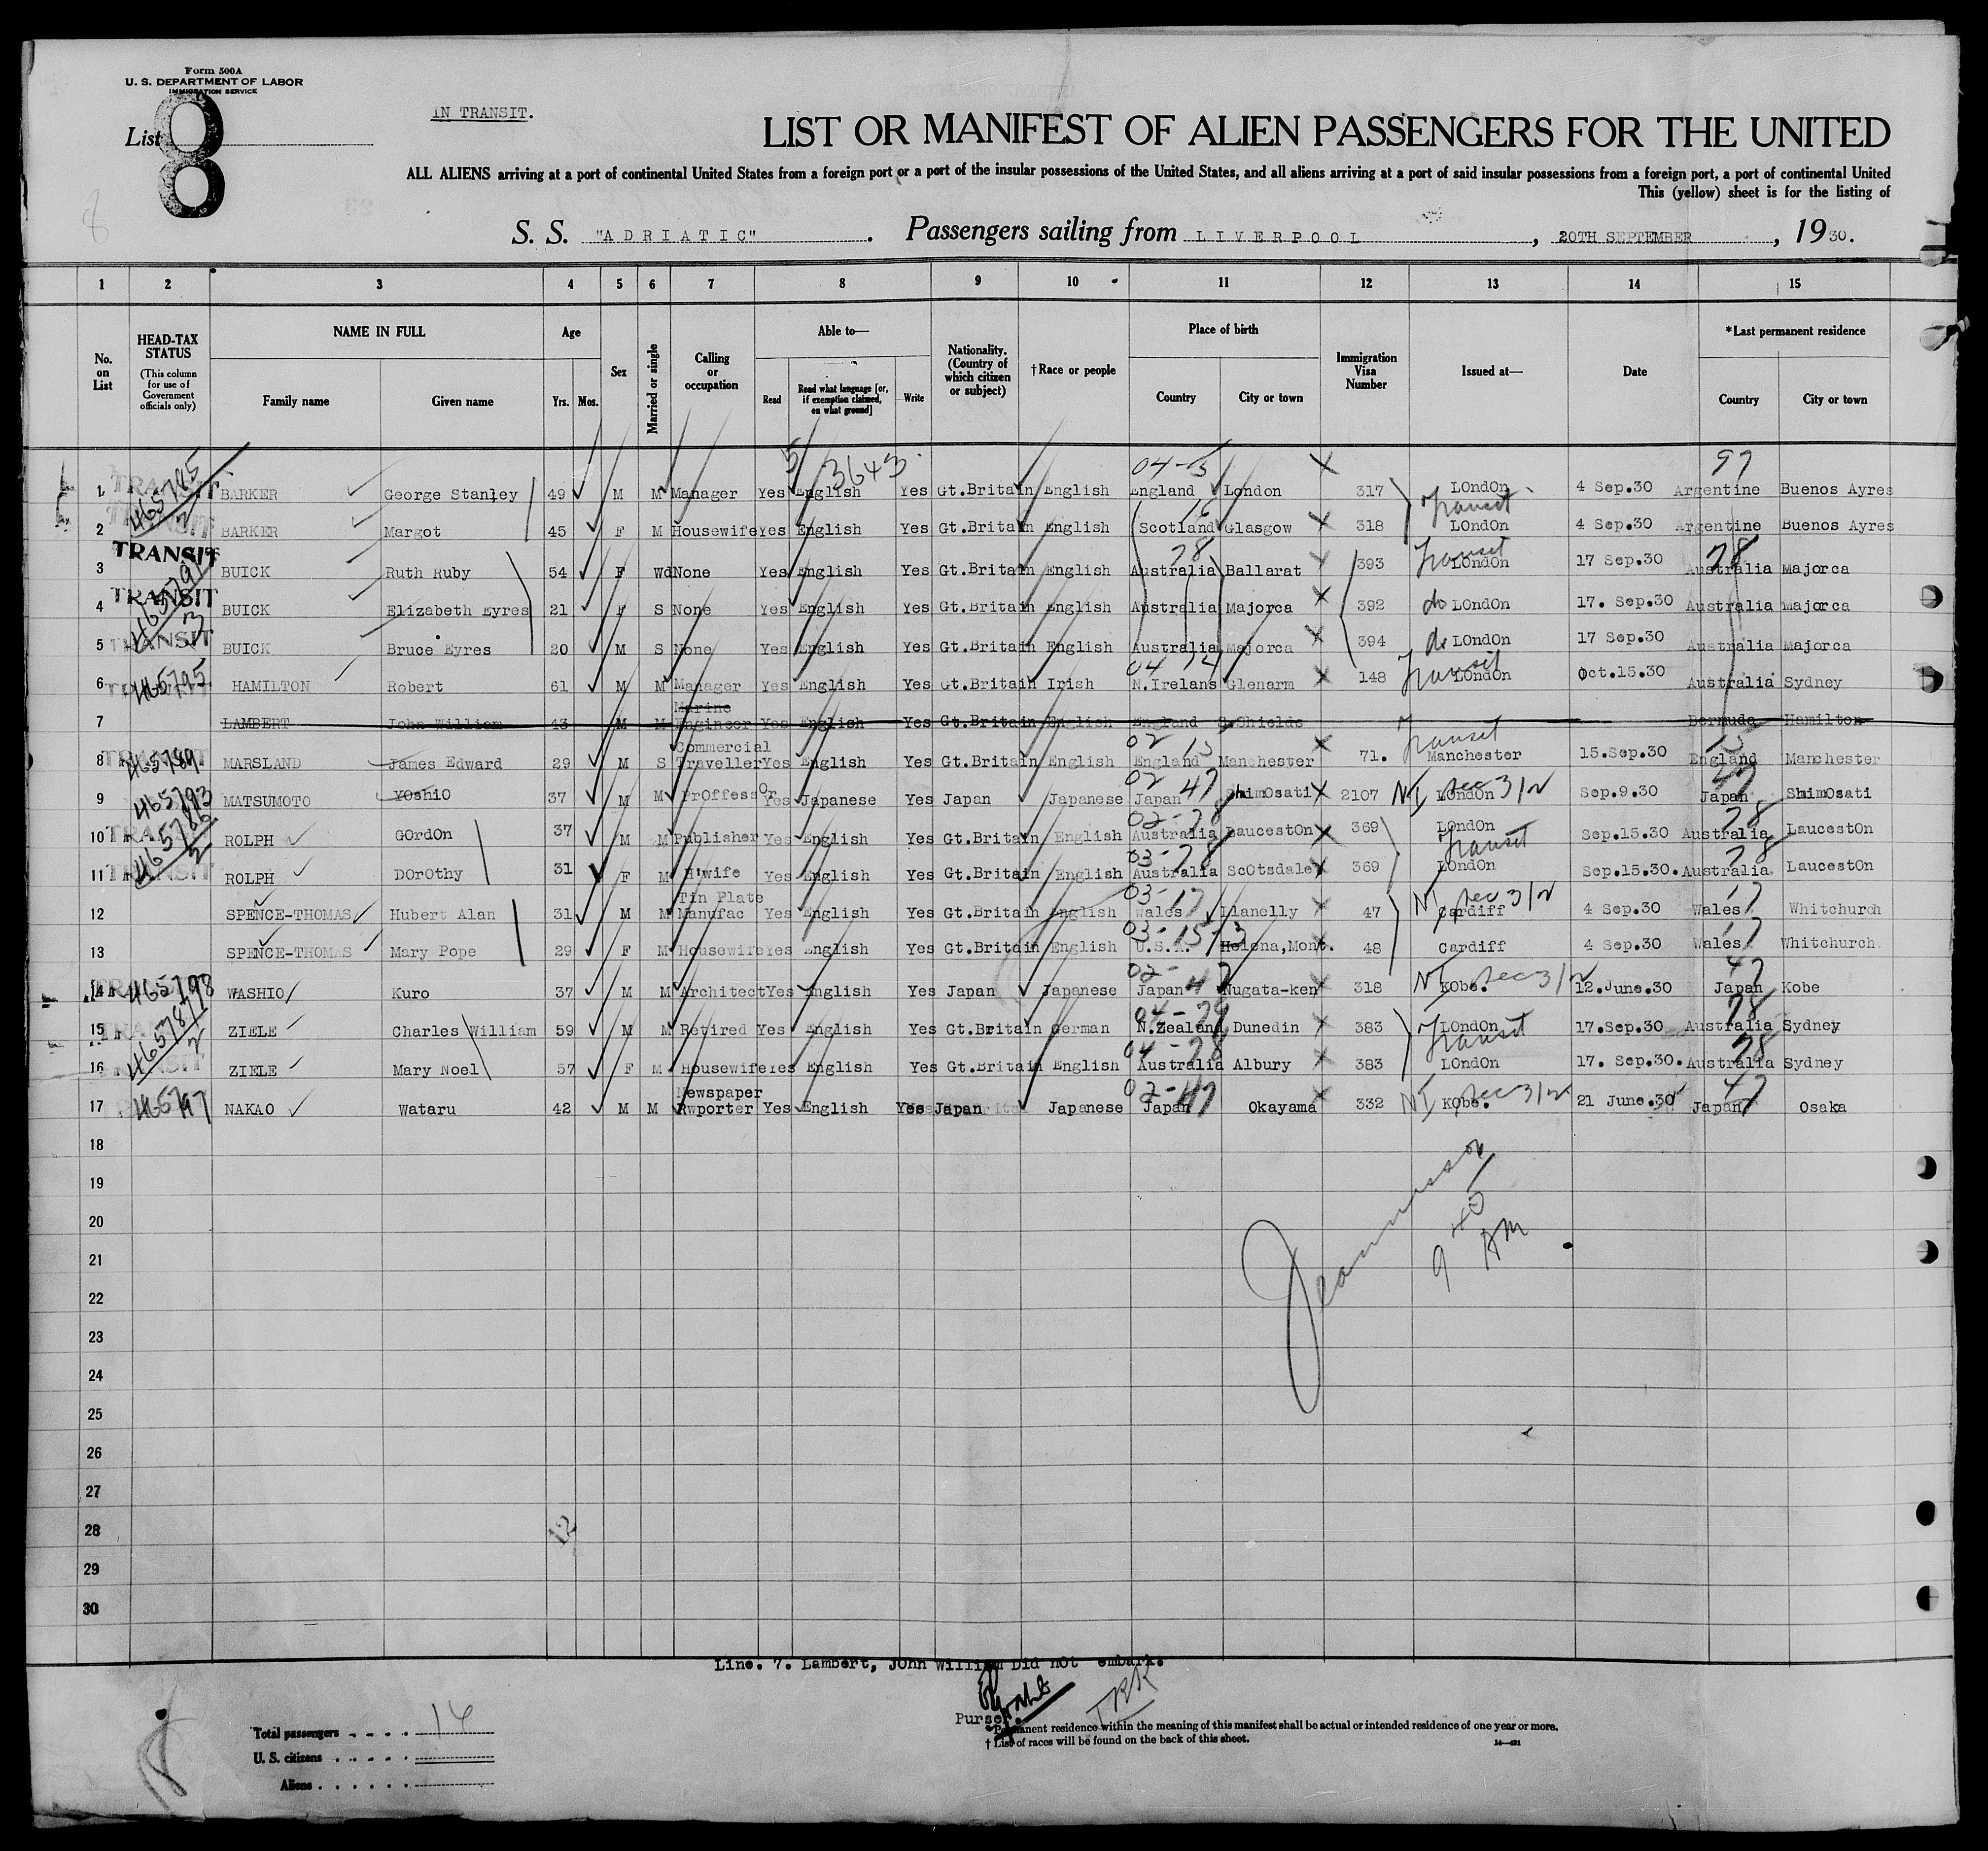 Form 500A
U. S. DEPARTMENT OF LABOR
IMMIGRATION SERVICE
List 8
IN TRANSIT.
LIST OR MANIFEST OF ALIEN PASSENGERS FOR THE UNITED
ALL ALIENS arriving at a port of continental United States from a foreign port or a port of the insular possessions of the United States, and all aliens arriving at a port of said insular possessions from a foreign port, a port of continental United
This (yellow) sheet is for the listing of
8
S. S. "ADRIATIC". Passengers sailing from LIVERPOOL, 20TH SEPTEMBER, 1930.
1 2 3 4 5 6 7 8 9 10 11 12 13 14 15
No. on List
HEAD-TAX STATUS (This column for use of Government officials only)
NAME IN FULL
Family name Given name
Age
Yrs. Mos.
Sex
Married or single
Calling or occupation
Able to—
Read Read what language [or, if exemption claimed, on what ground] Write
Nationality. (Country of which citizen or subject)
†Race or people
Place of birth
Country City or town
Immigration Visa Number
Issued at—
Date
*Last permanent residence
Country City or town
5 3643 04-15 97
1 TRANSIT 465785/2 BARKER George Stanley 49 M M Manager Yes English Yes Gt.Britain English England London 317 London Transit 4 Sep.30 Argentine Buenos Ayres
2 TRANSIT BARKER Margot 45 F M Housewife Yes English Yes Gt.Britain English Scotland 16 Glasgow 318 London 4 Sep.30 Argentine Buenos Ayres
3 TRANSIT BUICK Ruth Ruby 54 F Wd None Yes English Yes Gt.Britain English Australia 28 Ballarat 393 Transit London 17 Sep.30 Australia 28 Majorca
4 TRANSIT BUICK Elizabeth Eyres 21 F S None Yes English Yes Gt.Britain English Australia Majorca 392 do London 17. Sep.30 Australia Majorca
5 TRANSIT BUICK Bruce Eyres 20 M S None Yes English Yes Gt.Britain English Australia Majorca 394 do London 17 Sep.30 Australia Majorca
6 TRANSIT 465795 HAMILTON Robert 61 M M Manager Yes English Yes Gt.Britain Irish 04 14 N.Irelans Glenarm 148 Transit London Oct.15.30 Australia Sydney
7 LAMBERT John William 43 M M Marine Engineer Yes English Yes Gt.Britain English England S.Shields Bermuda Hamilton
8 TRANSIT 465789 MARSLAND James Edward 29 M S Commercial Traveller Yes English Yes Gt.Britain English 02 15 England Manchester 71. Transit Manchester 15.Sep.30 England 15 Manchester
9 465793 MATSUMOTO Yoshio 37 M M Professor Yes Japanese Yes Japan Japanese 02 47 Japan Shimosati 2107 NI Sec 3/2 London Sep.9.30 Japan 47 Shimosati
10 TRANSIT 465786/2 ROLPH Gordon 37 M M Publisher Yes English Yes Gt.Britain English 02-28 Australia Lauceston 369 London Transit Sep.15.30 Australia 28 Lauceston
11 TRANSIT ROLPH Dorothy 31 F M H'wife Yes English Yes Gt.Britain English 03-28 Australia Scotsdale 369 London Sep.15.30. Australia 28 Lauceston
12 SPENCE-THOMAS Hubert Alan 31 M M Tin Plate Manufac Yes English Yes Gt.Britain English 03-17 Wales Llanelly 47 NI Sec 3/2 Cardiff 4 Sep.30 Wales 17 Whitchurch
13 SPENCE-THOMAS Mary Pope 29 F M Housewife Yes English Yes Gt.Britain English 03-15-13 U.S.A. Helena,Mont. 48 Cardiff 4 Sep.30 Wales 17 Whitchurch
14 465798 WASHIO Kuro 37 M M Architect Yes English Yes Japan Japanese 02-47 Japan Nugata-ken 318 NI Sec 3/2 Kobe. 12.June.30 Japan 47 Kobe
15 TRANSIT 465787/2 ZIELE Charles William 59 M M Retired Yes English Yes Gt.Britain German 04-29 N.Zealand Dunedin 383 London Transit 17.Sep.30 Australia 28 Sydney
16 TRANSIT ZIELE Mary Noel 57 F M Housewife Yes English Yes Gt.Britain English 04-28 Australia Albury 383 London 17. Sep.30. Australia 28 Sydney
17 465797 NAKAO Wataru 42 M M Newspaper Rwporter Yes English Yes Japan Japanese 02-47 Japan Okayama 332 NI Sec 3/2 Kobe. 21 June.30 Japan 47 Osaka
18
19
20
21
22
23
24
25
26
27
28
29
30
9 40 AM
12
Line. 7. Lambert, John William Did not embark.
Purser.
Total passengers 16
U. S. citizens
Aliens
Permanent residence within the meaning of this manifest shall be actual or intended residence of one year or more.
† List of races will be found on the back of this sheet.
8